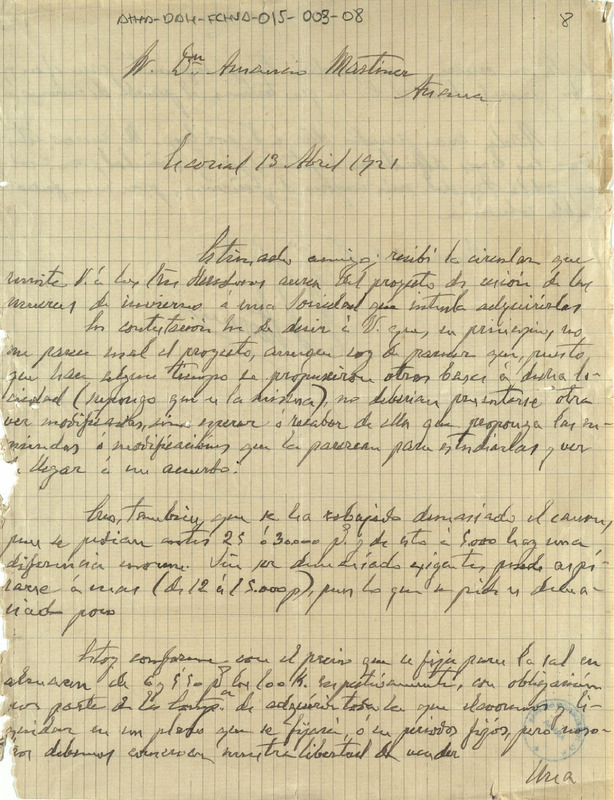 AHHA-DAH-FCHVA-015-003-08
8
Sr. Dn. Amancio Martinez
Anana
Escorial 13 Abril 1921
Estimado amigo: recibí la circular que
remite V. á los Sres Herederos acerca del proyecto de cesión de los
de invierno a una Sociedad que intenta adquirirlas
En contestación he de decir á V. que, en principio, no
me parece mal el proyecto, aunque soy de parecer que, puesto
que hace algun tiempo se propusieron otras bases á dicha So-
ciedad (supongo que es la misma) no deberian presentarse otra
vez modificadas, sino esperar o recabar de ella que proponga las en-
miendas ó modificaciones que la parezcan para estudiarlas y ver
de llegar á un acuerdo.
Creo, tambien, que se ha rebajado demasiado el canon,
pues se pedian antes 25 ó 30000 p. y de esto á 5000 hay una
diferencia enorme. Sin ser demasiado exigentes puede aspi-
rarse á mas (de 12 á 15.000 p), pues lo que se pide es dema-
siado poco
Estoy conforme con el precio que se fija para la sal en
almacen de 6, y 5,50 p. los 100 K. respectivamente, con obligación
por parte de la Compa. de adquirir toda la que elaboremos y li-
quidar en un plazo que se fijará, ó en periodos fijos, pero noso-
tros debemos conservar nuestra libertad de vender
Una